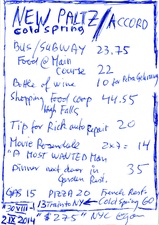 NEW PALTZ / ACCORD
cold spring
BUS/SUBWAY 23.75
Food @ Main
course 22
Bottle of wine 10 for
Shopping food coop 44.55
High Falls
Tip for Rick auto Repair 20
Movie Rosendale 2x7= 14
"A MOST WANTED MAN
Dinner and beer in 35
Garden Rest.
GAS 15 PIZZA 20 French Rest.
13 Train to NY Cold Spring 60
30 VIII - 2 IX 2014 "$275" NYC Egon